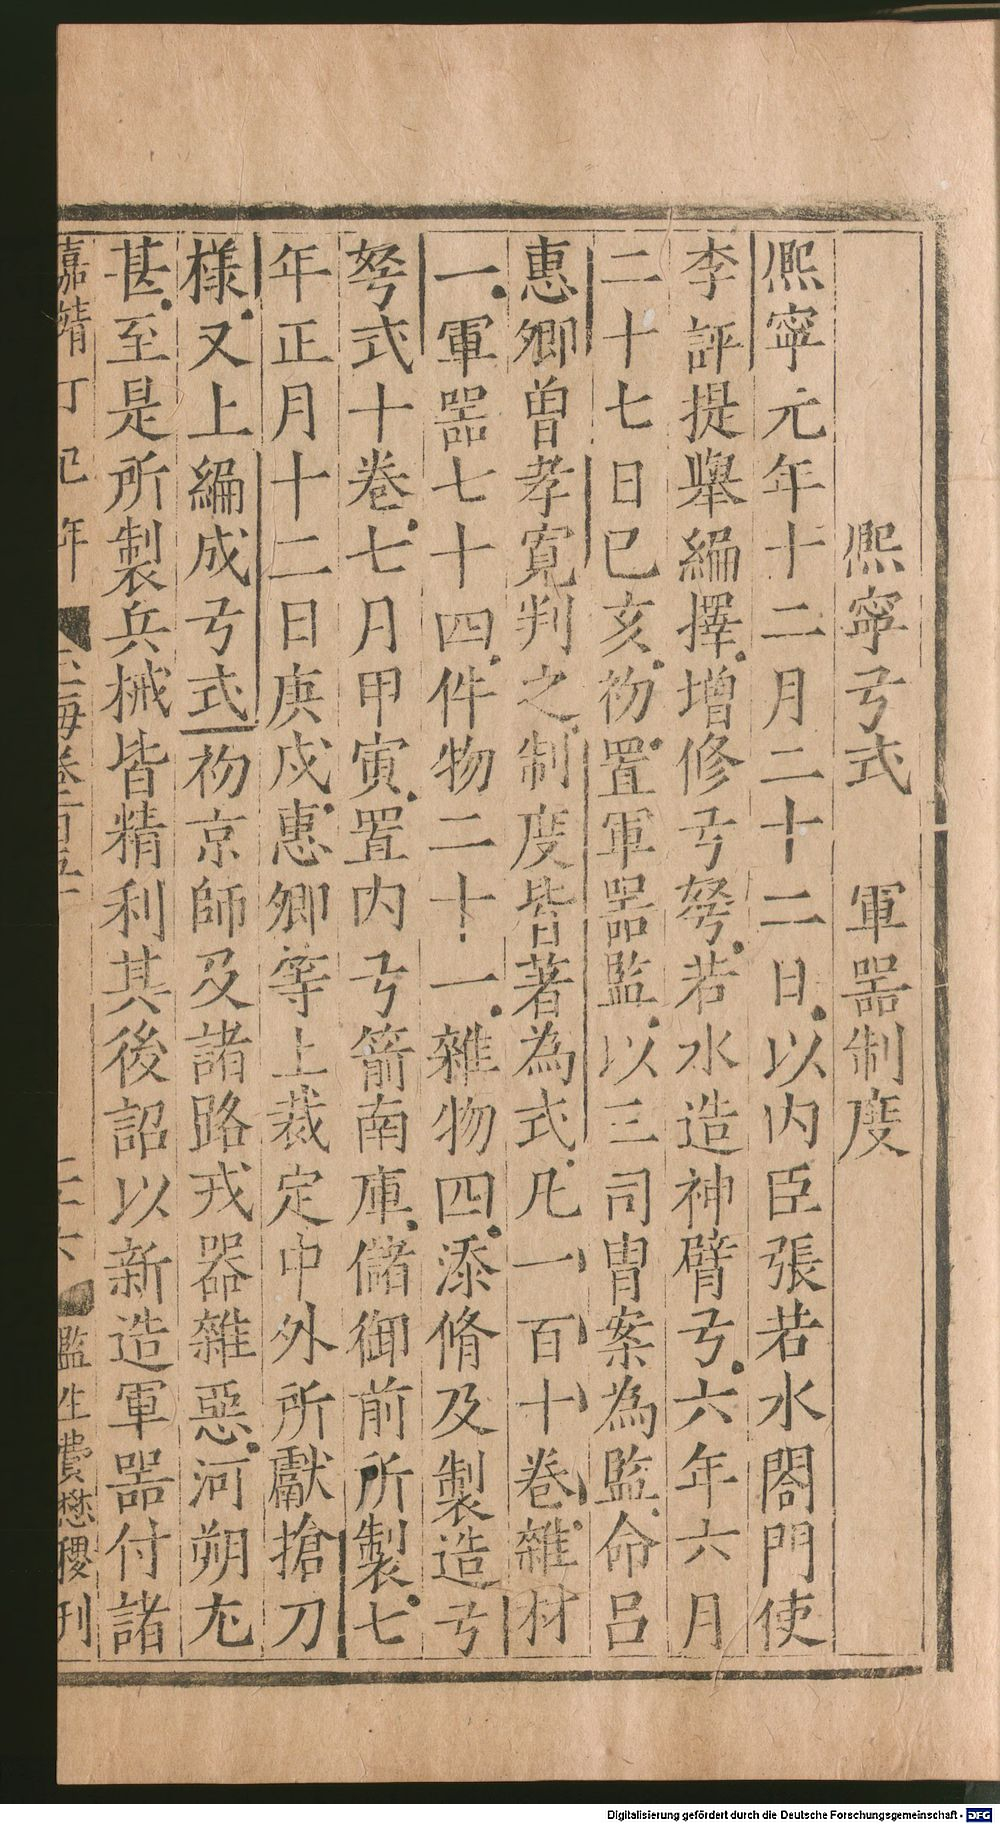 熈寧弓式　軍噐制度
熈寧元年十二月二十二日以内臣張若水閤門使
李評提舉編擇增修弓弩若水造神臂弓六年六月
二十七日已亥初置軍噐監以三司冑案為監命呂
惠卿曾孝寛判之制度皆著為式凡一百十卷雜材
一軍噐七十四件物二十一雜物四添脩及製造弓
弩式十卷七月甲寅置内弓箭南庫儲御前所製七
年正月十二日庚戍惠卿等上裁定中外所獻搶刀
樣又上編成弓式初京師及諸路戎器雜惡河朔尢
甚至是所製兵械皆精利其後詔以新造軍噐付諸
嘉靖丁巳年 玉海卷一百五十 二六 監生費懋稷刊
Digitalisierung gefördert durch die Deutsche Forschungsgemeinschaft - DFG